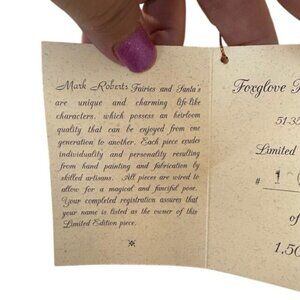 Mark Roberts Fairies and Santa's
are unique and charming life-like
characters, which possess an heirloom
quality that can be enjoyed from one
generation to another. Each piece exudes
individuality and personality resulting
from hand painting and fabrication by
skilled artisans. All pieces are wired to
allow for a magical and fanciful pose.
Your completed registration assures that
your name is listed as the owner of this
Limited Edition piece.
Foxglove
51-35
Limited
#
of
1,50